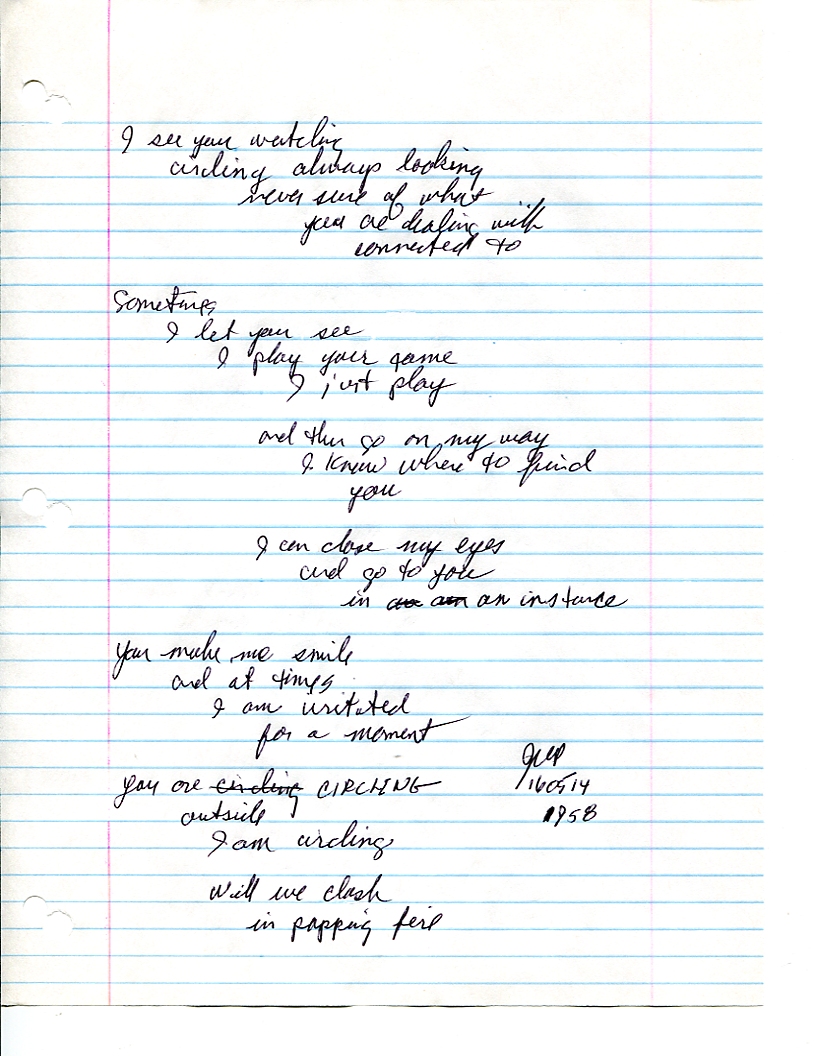 I see you watching
circling always looking
never sure of what
you are dealing with
connected to
Sometimes
I let you see
I play your game
I just play
and then go on my way
I know where to find
you
I can close my eyes
and go to you
in an an an instance
You make me smile
and at times
I am irritated
for a moment
you are circling CIRCLING
outside
I am circling
Will we clash
in popping fire
160514
1958